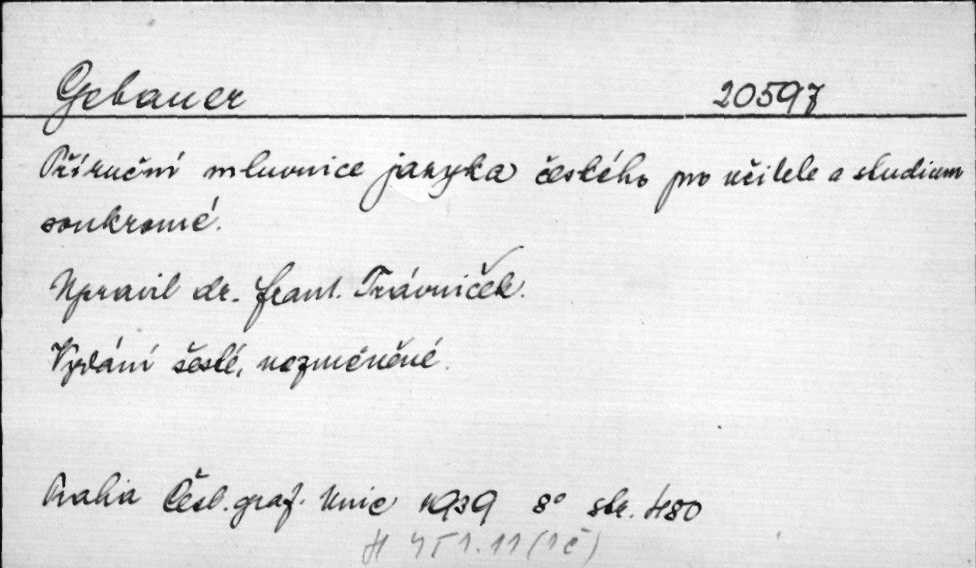 Gebauer 20597
Příruční mluvnice jazyka českého pro učitele a studium
soukromé.
Upravil dr. Frant. Trávníček.
Vydání šesté, nezměněné.
Praha Česl. graf. Unie 1939 8° str. 480
H 451.11 (1č)